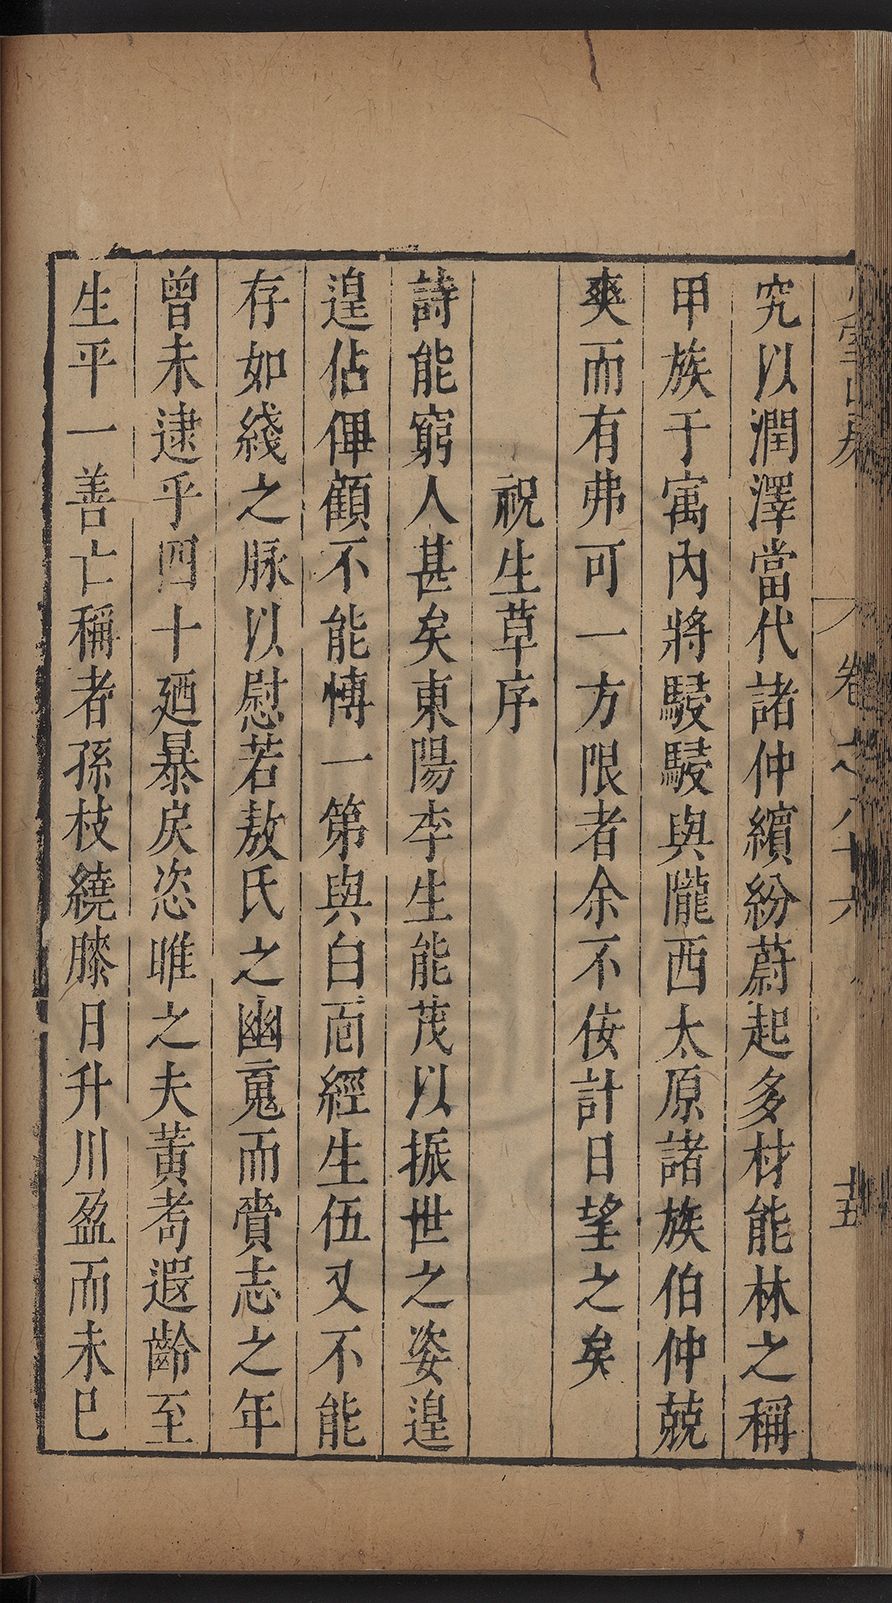 究以潤澤當代諸仲繽紛蔚起多材能林之稱
甲族于寓內將駸駸與隴西太原諸族伯仲兢
爽而有弗可一方限者余不佞計日望之矣
祝生草序
詩能窮人甚矣東陽李生能茂以振世之姿遑
遑佔俾顧不能博一第與白面經生伍又不能
存如綫之脉以慰若敖氏之幽䰟而賫志之年
曾未逮乎四十廼暴戾恣睢之夫黃耇遐齡至
生平一善亡稱者孫枝繞膝日升川盈而未已